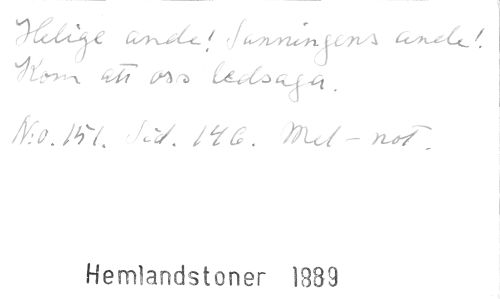 Helige ande! Sanningens ande!
Kom att oss ledsaga.
N:o. 151. Sid. 146. Mel-not.
Hemlandstoner 1889